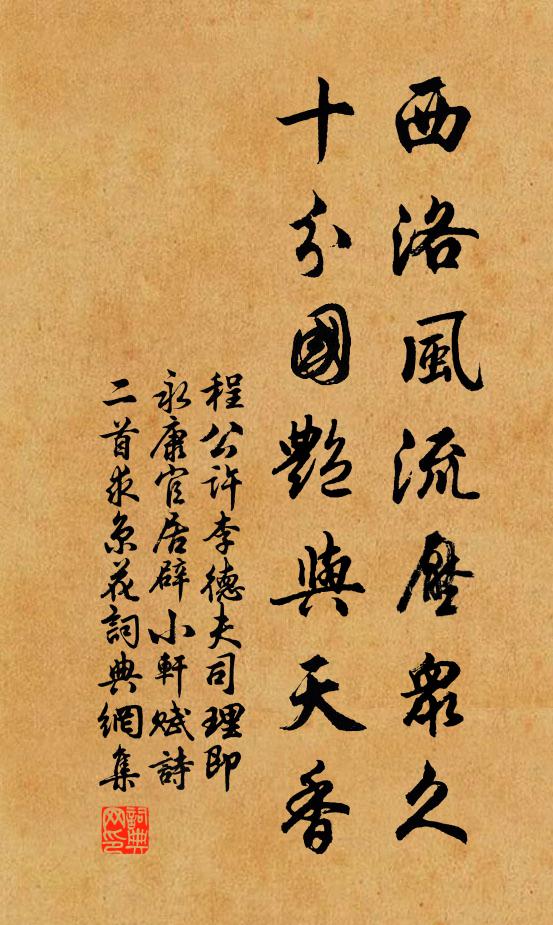 西洛風流壓眾久
十分國艷與天香
程公许李德夫司理即
永康官居辟小軒賦詩
二首求京花詞典網集
詞典网印